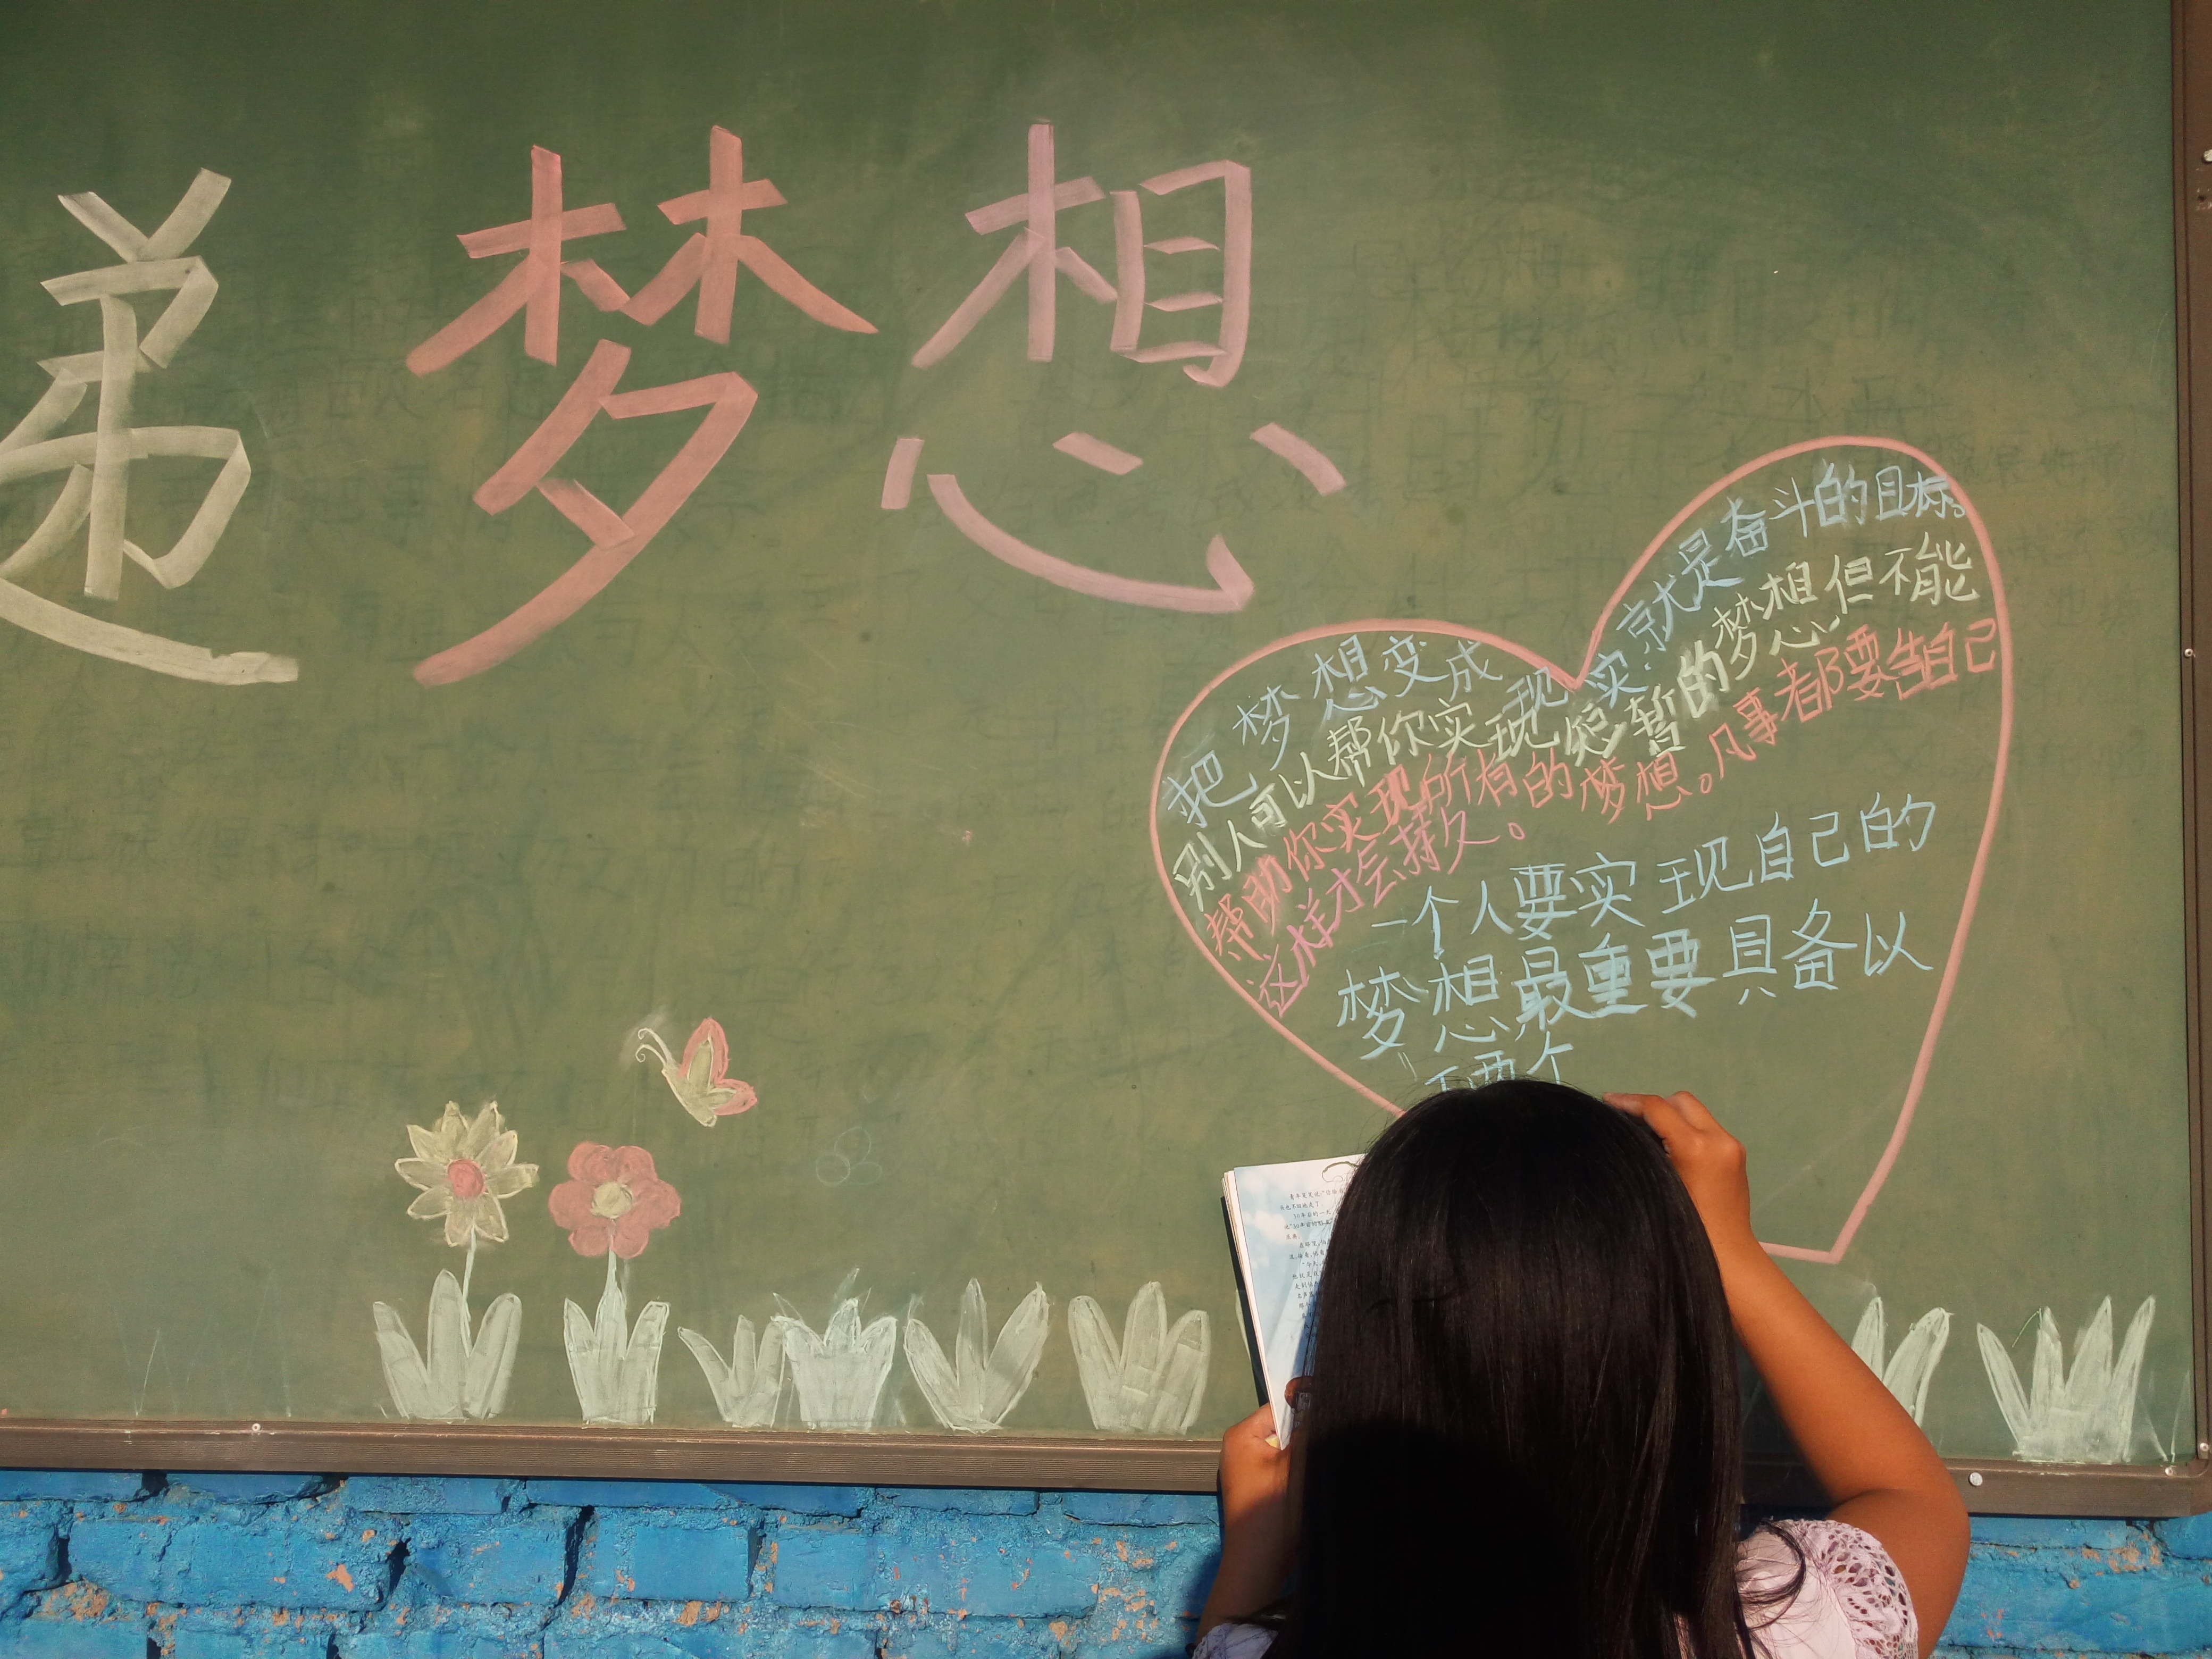 递梦想
把梦想变成现实.就是奋斗的目标。
别人可以帮你实现短暂的梦想但不能
帮助你实现所有的梦想。凡事都要靠自己
这样才会持久。
一个人要实现自己的
梦想最重要具备以
下两个